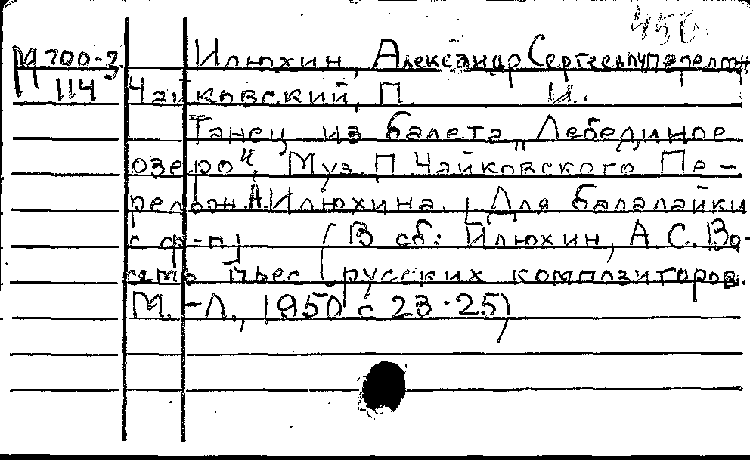 450.
М 700-3 Илюхин, Александр Сергеевич, перелож.
114 Чайковский, П. И.
Танец из балета „Лебединое
озеро". Муз. П. Чайковского. Пе-
релож. А. Илюхина. [Для балалайки
с ф-п] (В сб: Илюхин, А. С. Во-
семь пьес русских композиторов.
М.-Л., 1950 с 23-25)